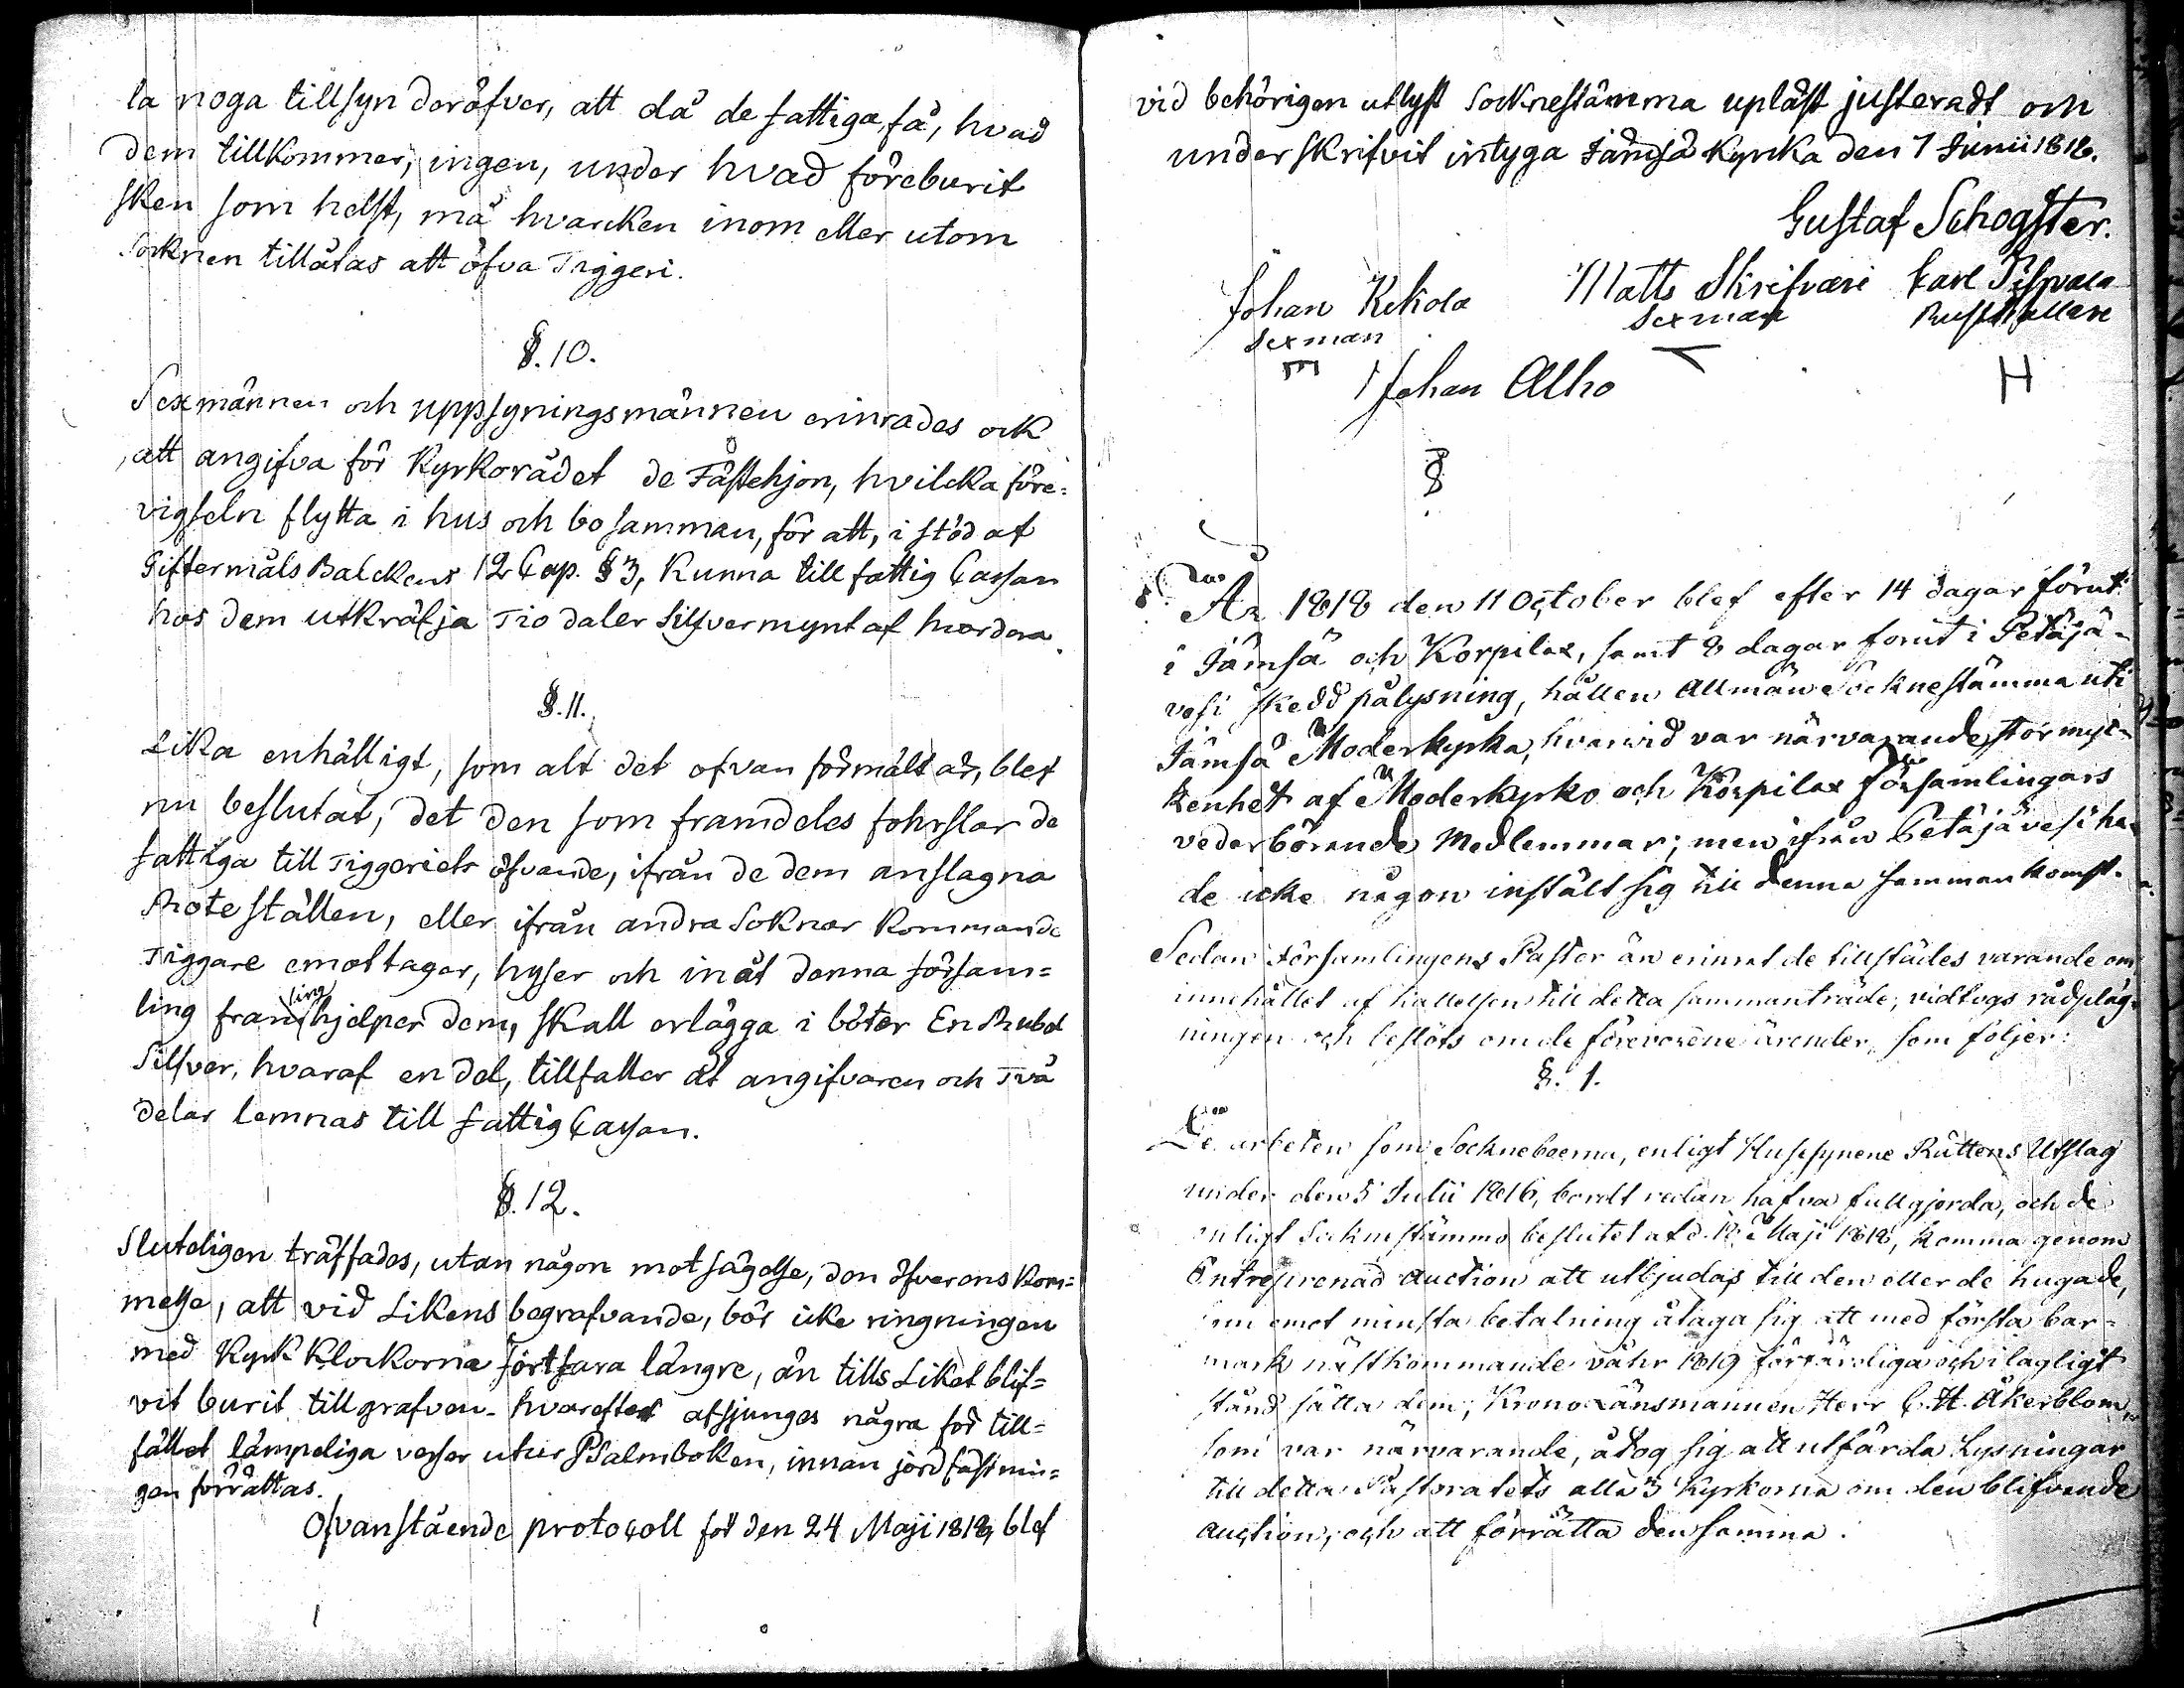 la noga tillsyn deröfver, att då de fattiga få, hvad
dem tillkommer, ingen, under hvad föreburit
sken som helst, må hvarcken inom eller utom
Socknen tillåtas att öfva Tiggeri.
§. 10.
Sexmännen och uppsyningsmännen erinrades ock
att angifva för Kyrkorådet de Fästehjon, hvilcka före
vigseln flytta i hus och bo samman, för att, i stöd af
Giftermåls Balckens 12 Cap. § 3, kunna till fattig Cassan
hos dem utkräfja Tio daler Silfvermynt af hvardera.
§. 11.
Lika enhälligt, som alt det ofvan förmält är, blef
nu beslutat, det den som framdeles fohrslar de
fattiga till Tiggeriets öfvande, ifrån de dem anslagna
Roteställen, eller ifrån andra Soknar kommande
Tiggare emottager, hyser och inåt denna försam=
ling framhjelper dem, skall erlägga i böter En Rubel
Silfver, hvaraf en del, tillfaller åt angifvaren och Två
delar lemnas till fattig Cassan.
§. 12.
Sluteligen träffades, utan någon motsägelse, den öfverens kom=
melse, att vid Likens begrafvande, bör icke ringningen
med KyrkKlockorna fortfara längre, än tills Liket blif=
vit burit till grafven, hvarefter afsjunges några för till=
fället lämpeliga verser utur Psalmboken, innan jordfästnin=
gen förrättas.
Ofvanstående protocoll för den 24 Maji 1818, blef
vid behörigen utlyst Socknestämma upläst justeradt och
underskrifvit intyga Jämsä Kyrka den 7 Junii 1818.
Gustaf Schogster.
Johan Kekola Matts Skrifvari Carl
Sexman Sexman Rusthållare
Johan Alho
H
§
År 1818 den 11 October blef efter 14 dagar förut
i Jämsä och Korpilax, samt 8 dagar förut i Petäjä=
vesi skedd pålysning, hållen Allmän Socknestämma uti
Jämsä Moderkyrka, hvarvid var närvarande, stor myc=
kenhet af Moderkyrko och Korpilax församlingars
vederbörande Medlemmar; men ifrån Petäjävesi ha=
de icke någon instält sig till denna sammankomst.
Sedan Församlingens Pastor än erinrat de tillstädes varande om
innehållet af kallelsen till detta sammanträde, vidtogs rådpläg=
ningen och beslöts om de förevarene ärender, som följer:
§. 1.
De arbeten som Sockneboerna, enligt Husesynene Rättens Utslag
under den 5 Julii 1816, bordt redan hafva fullgjorda, och de
enligt Socknestämmo beslutet af d. Maji 1818, komma genom
Entreprenad auction att utbjudas till den eller de hugade,
som emot minsta betalning åtaga sig att med första bar=
mark nästkommande våhr 1819 förfärdiga och i lagligt
stånd sätta dem; Kronolänsmannen Herr C. H. Åkerblom,
som var närvarande, åtog sig att utfärda Lysningar
till detta Pastoratets alla 3 Kyrkorna om den blifvande
auction, och att förrätta densamma.